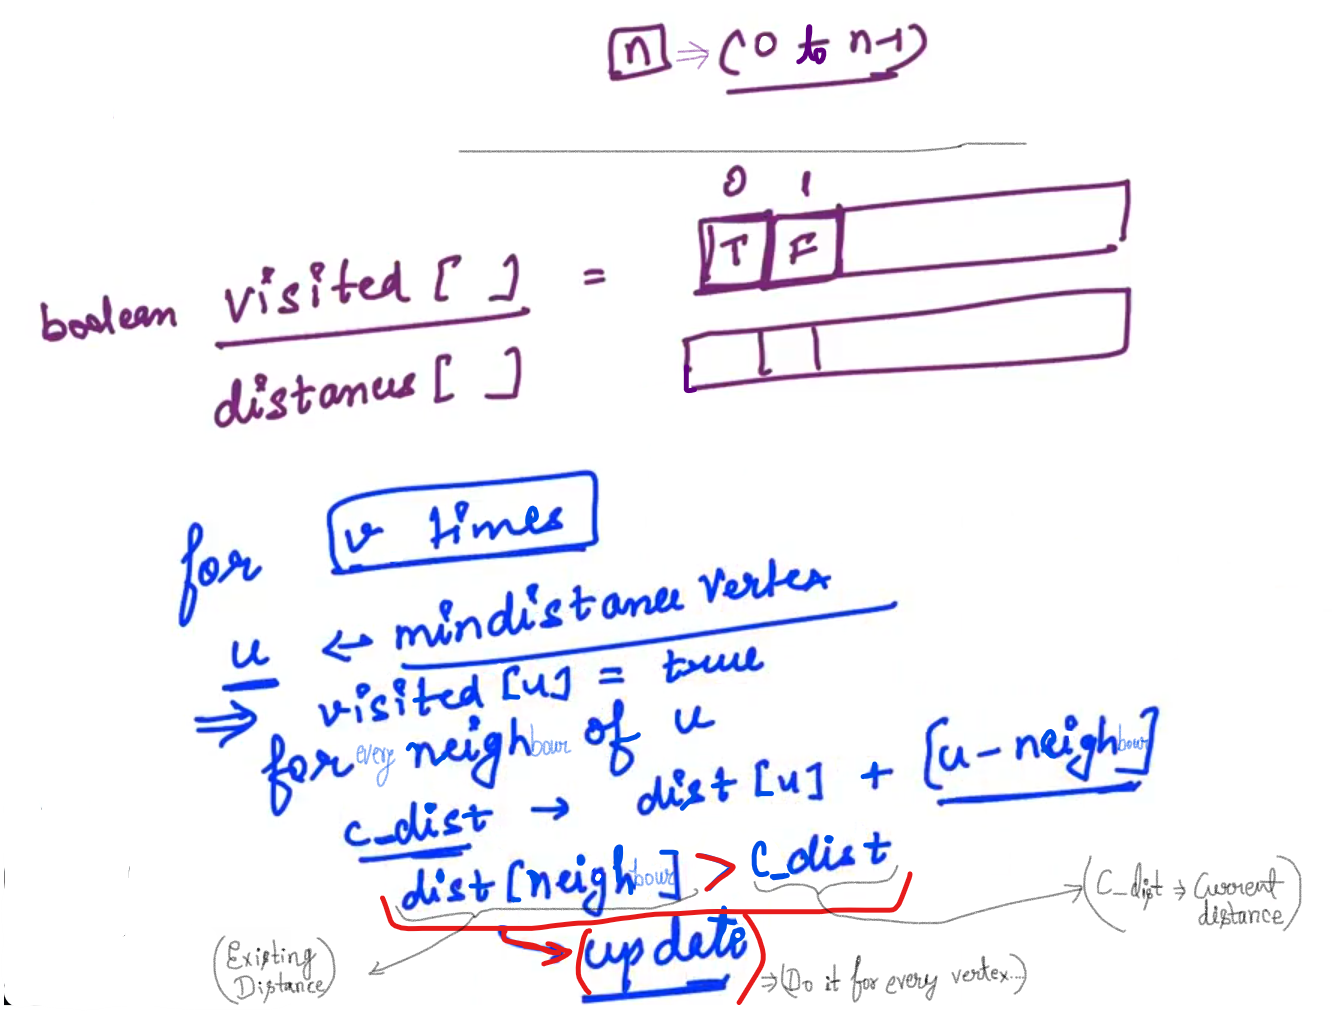 n ⇒ (0 to n-1)
0 1
T F
boolean visited [ ] =
distances [ ]
for v times
u ← mindistance vertex
⇒ visited [u] = true
for every neighbour of u
c_dist → dist [u] + [u - neighbour]
dist [neighbour] > C_dist
(C_dist ⇒ Current distance)
(Existing Distance)
(update) ⇒ (Do it for every vertex...)